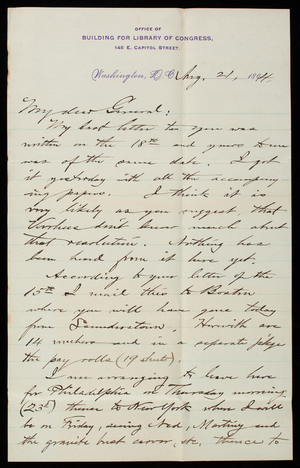 OFFICE OF
BUILDING FOR LIBRARY OF CONGRESS,
145 E. CAPITOL STREET.
Washington, D.C. Aug. 21, 1894.
My dear General:
My last letter to you was
written on the 18th and yours to me
was of the same date. I got
it yesterday with all the accompany
ing papers. I think it is
very likely as you suggest, that
Voorhees don't know much about
that resolution. Nothing has
been heard from it here yet.
According to your letter of the
15th I mail this to Boston
where you will have gone today
from Saunderstown. Herewith are
14 vouchers and in a separate p'k'ge
the pay rolls (19 sheets).
I am arranging to leave here
for Philadelphia on Thursday morning
(23d) thence to New York where I will
be on Friday, seeing Ned, Martiny and
the granite bust carver, etc, thence to